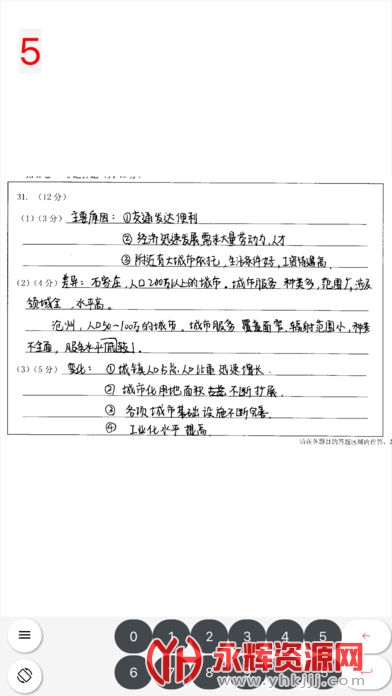 5
31. (12分)
(1)(3分) 主要原因: ①交通发达便利
② 经济迅速发展需求大量劳动力,人才
③ 附近有大城市依托,生活条件好,工资待遇高.
(2)(4分) 差异: 石家庄,人口200万以上的城市.城市服务 种类多,范围广,涉及
领域全 ,水平高。
沧州,人口50~100万的城市,城市服务 覆盖面窄.辐射范围小,种类
不全面,服务水平
(3)(5分) 变化: ①城镇人口占总人口比重 迅速增长.
② 城市化用地面积 不断扩展.
③ 各项城市基础设施不断完善.
④ 工业化水平 提高.
请在各题目的答题区域内作答,
0 1 2 3 4 5
6 7 8
永辉资源网
www.yhkjljj.com